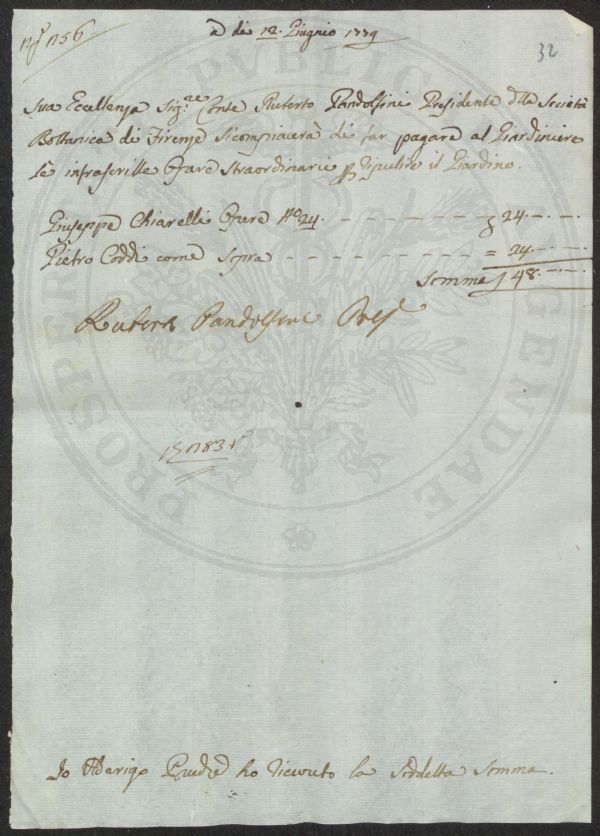 N.º 156
32
a dì 12. Giugnio 1779
Sua Eccellenza Sig.re Conte Ruberto Pandolfini Presidente dlla Società
Bottanica di Firenze si compiacerà di far pagare al Giardiniere
le infrascritte Opare straordinarie p ripulire il Giardino.
Giuseppe Chiarelli Opere No 24. 24.
Pietro Coddi come sopra = 24.
Somma 48.
Ruberto Pandolfini Pres
Io Arigo ho riceuto la sudetta somma.
PROSPERITATI PUBLICAE AUGENDAE